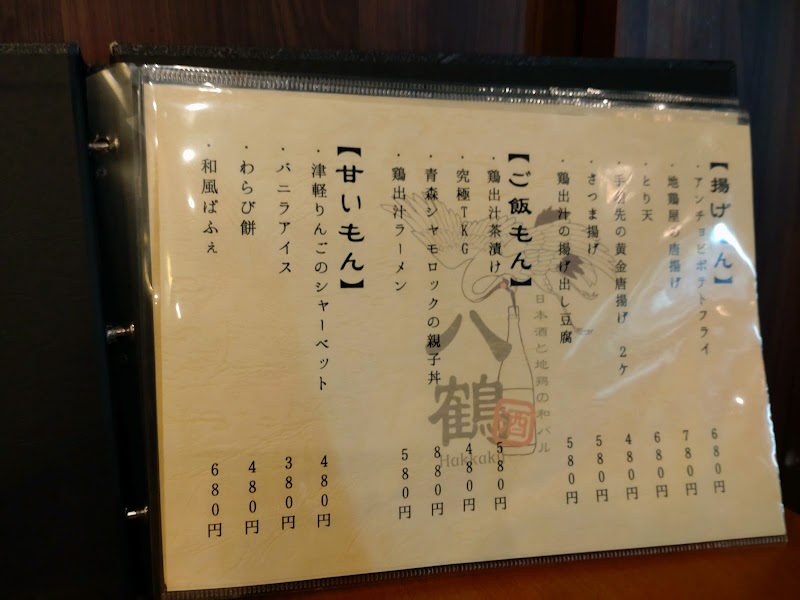 【揚げもん】
・アンチョビポテトフライ 680円
・地鶏屋の唐揚げ 780円
・とり天 680円
・手羽先の黄金唐揚げ 2ケ 480円
・さつま揚げ 580円
・鶏出汁の揚げ出し豆腐 580円
【ご飯もん】
・鶏出汁茶漬け 580円
・究極TKG 480円
・青森シャモロックの親子丼 880円
・鶏出汁ラーメン 580円
【甘いもん】
・津軽りんごのシャーベット 480円
・バニラアイス 380円
・わらび餅 480円
・和風ぱふぇ 680円
日本酒と地鶏の和バル
八鶴
酒
Hakkaku